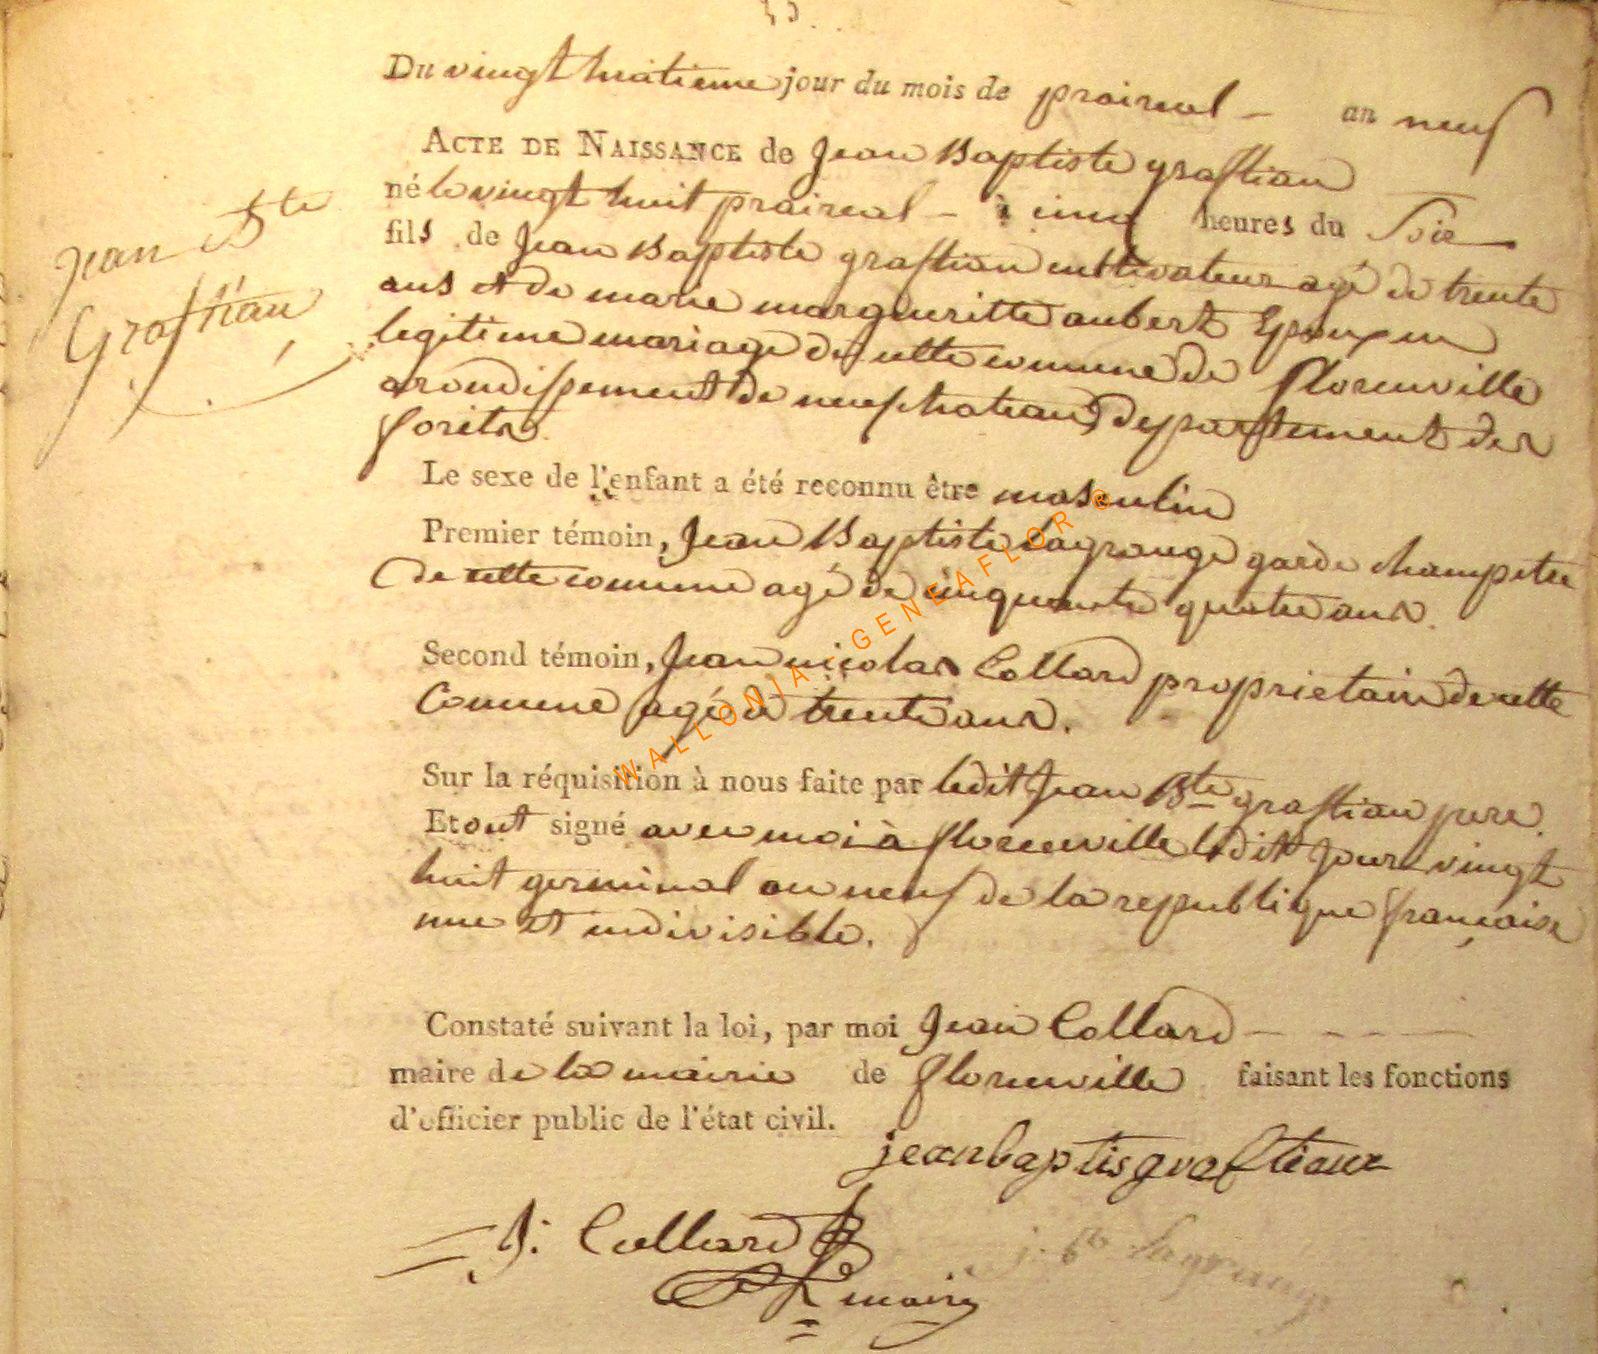 Du vingt huitieme jour du mois de praireal - an neuf
ACTE DE NAISSANCE de Jean Baptiste grastian
né le vingt huit praireal - à cinq heures du Soir
fils de Jean Baptiste grastian cultivateur agé de trente
ans et de marie margueritte aubert Epoux en
legitime mariage de cette commune de florenville
arondissement de neufchateau departement des
forets
Jean Bte
Grastian
Le sexe de l'enfant a été reconnu être masculin
Premier témoin, Jean Baptiste Lagrange garde champetre
de cette commune agé de cinquante quatre ans.
Second témoin, Jean nicolas Collard proprietaire de cette
Commune agé de trente ans.
Sur la réquisition à nous faite par ledit Jean Bte grastian pere.
Et ont signé avec moi à florenville ledit jour vingt
huit germinal an neuf de la republique française
une et indivisible.
Constaté suivant la loi, par moi Jean Collard - - - -
maire de la mairie de florenville faisant les fonctions
d'officier public de l'état civil.
jeanbaptis grastiaux
J. Collard
j. bte lagrange
maire
WALLONIA - GENEAFLOR ©